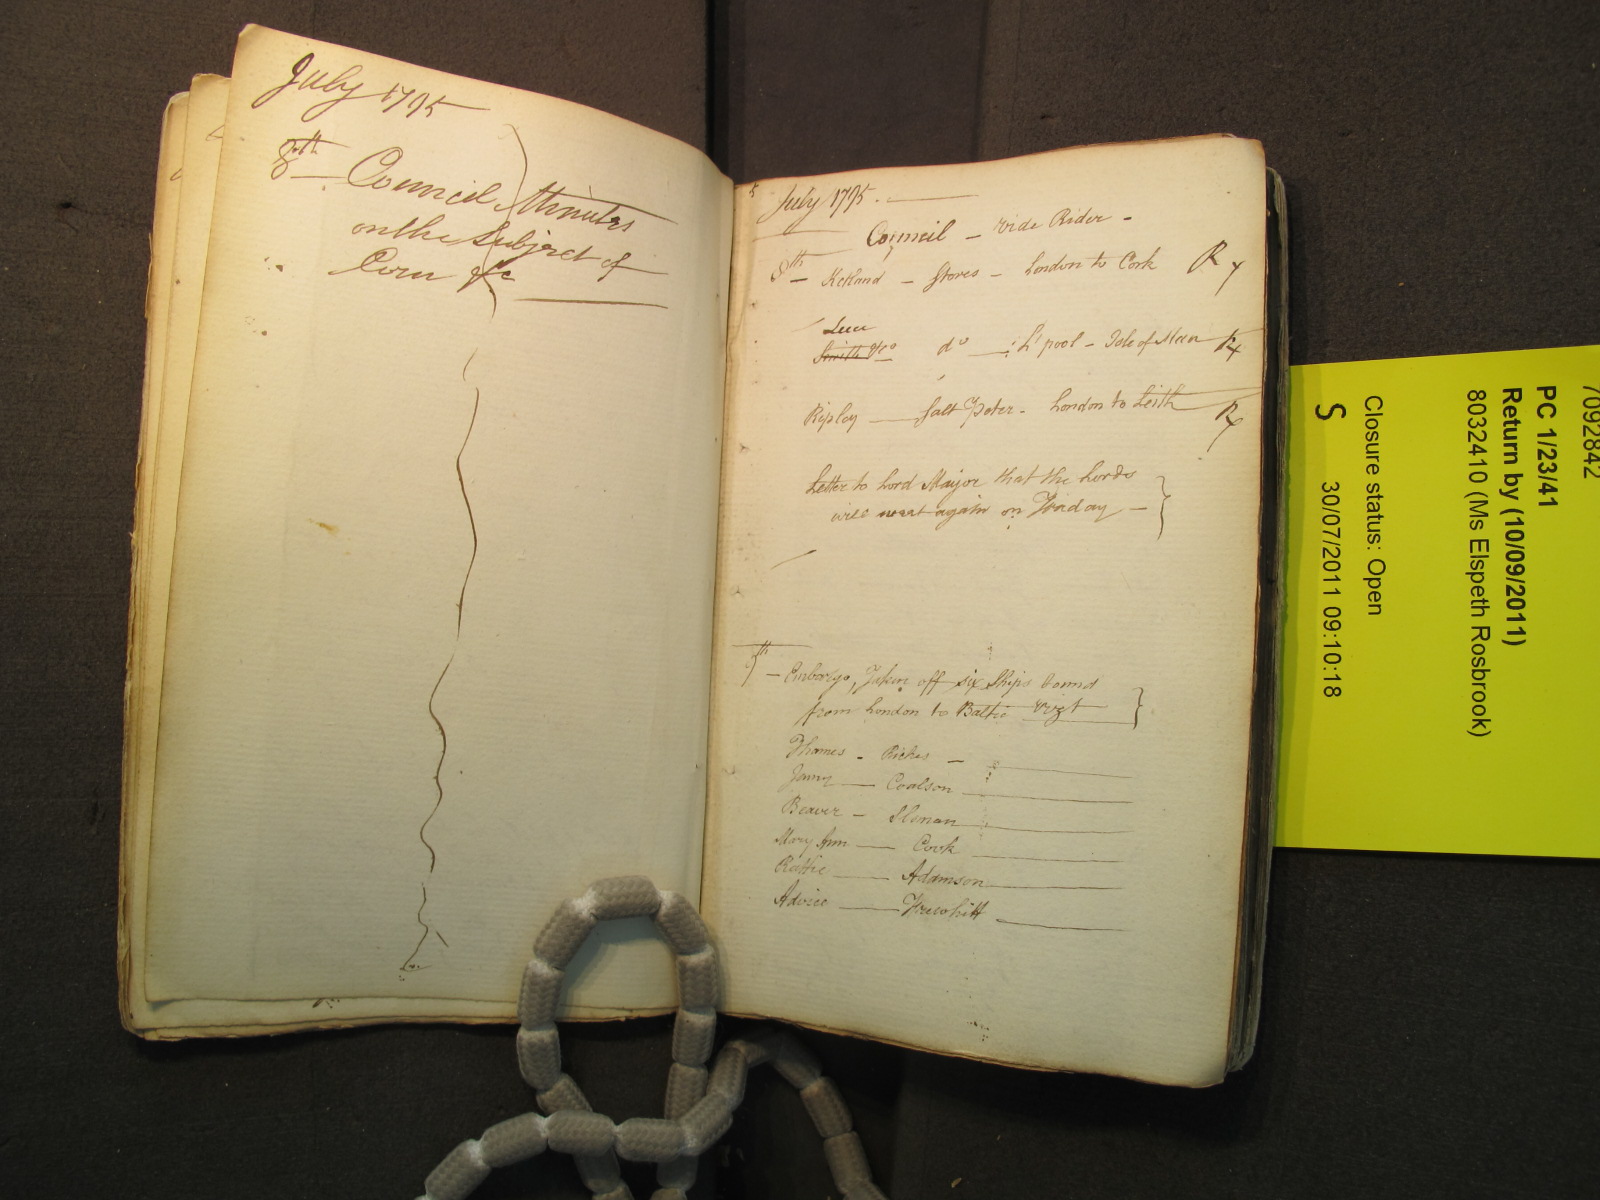 July 1795
8th Council Minutes
on the Subject of
Corn &c
July 1795.
Council - vide Rider -
8th - Stores - London to Cork R
Luce
Smith & Co do L'pool - Isle of Man R
Ripley Salt Peter - London to Leith R
Letter to Lord Mayor that the Lords
will meet again on Friday -
- Embargo, Taken off six Ships bound
from London to Baltic vizt
Thames - Riches -
Jenny Coalson
Beaver -
Mary Ann Cook
Adamson
Advice
7092842
PC 1/23/41
Return by (10/09/2011)
8032410 (Ms Elspeth Rosbrook)
Closure status: Open
S 30/07/2011 09:10:18